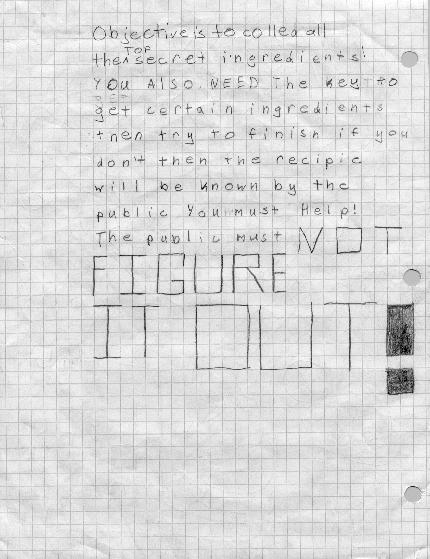 Objective is to collect all
the TOP secret ingredients!
YOU ALSO NEED The key to
get certain ingredients
then try to finish if you
don't then the recipie
will be known by the
public You must Help!
The public must NOT
FIGURE
IT OUT!